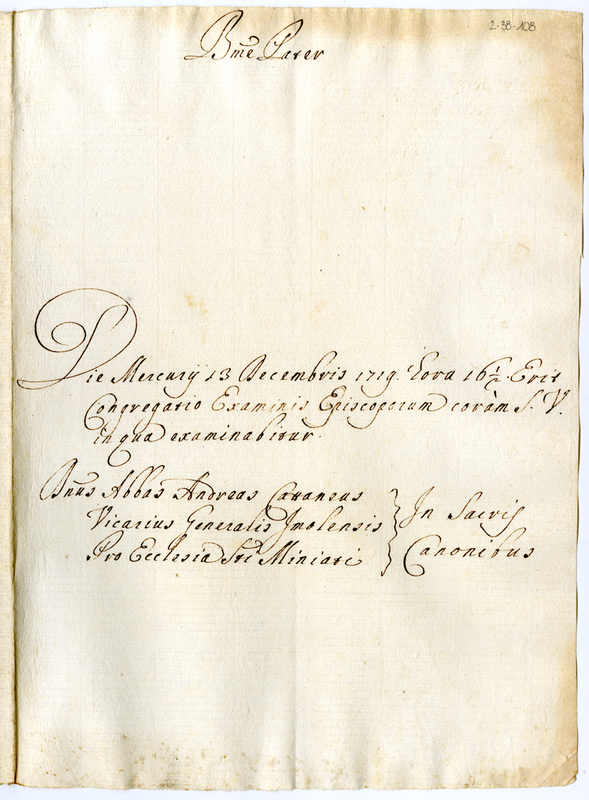 2-38-108
Bm̃e Pater
Die Mercurij 13 Decembris 1719. hora 16½ Erit
Congregatio Examinis Episcoporum coràm S. V.
in qua examinabitur.
Dñus Abbas Andreas Cattaneus
Vicarius Generalis Imolensis
Pro Ecclesia Sti Miniati
In Sacris
Canonibus